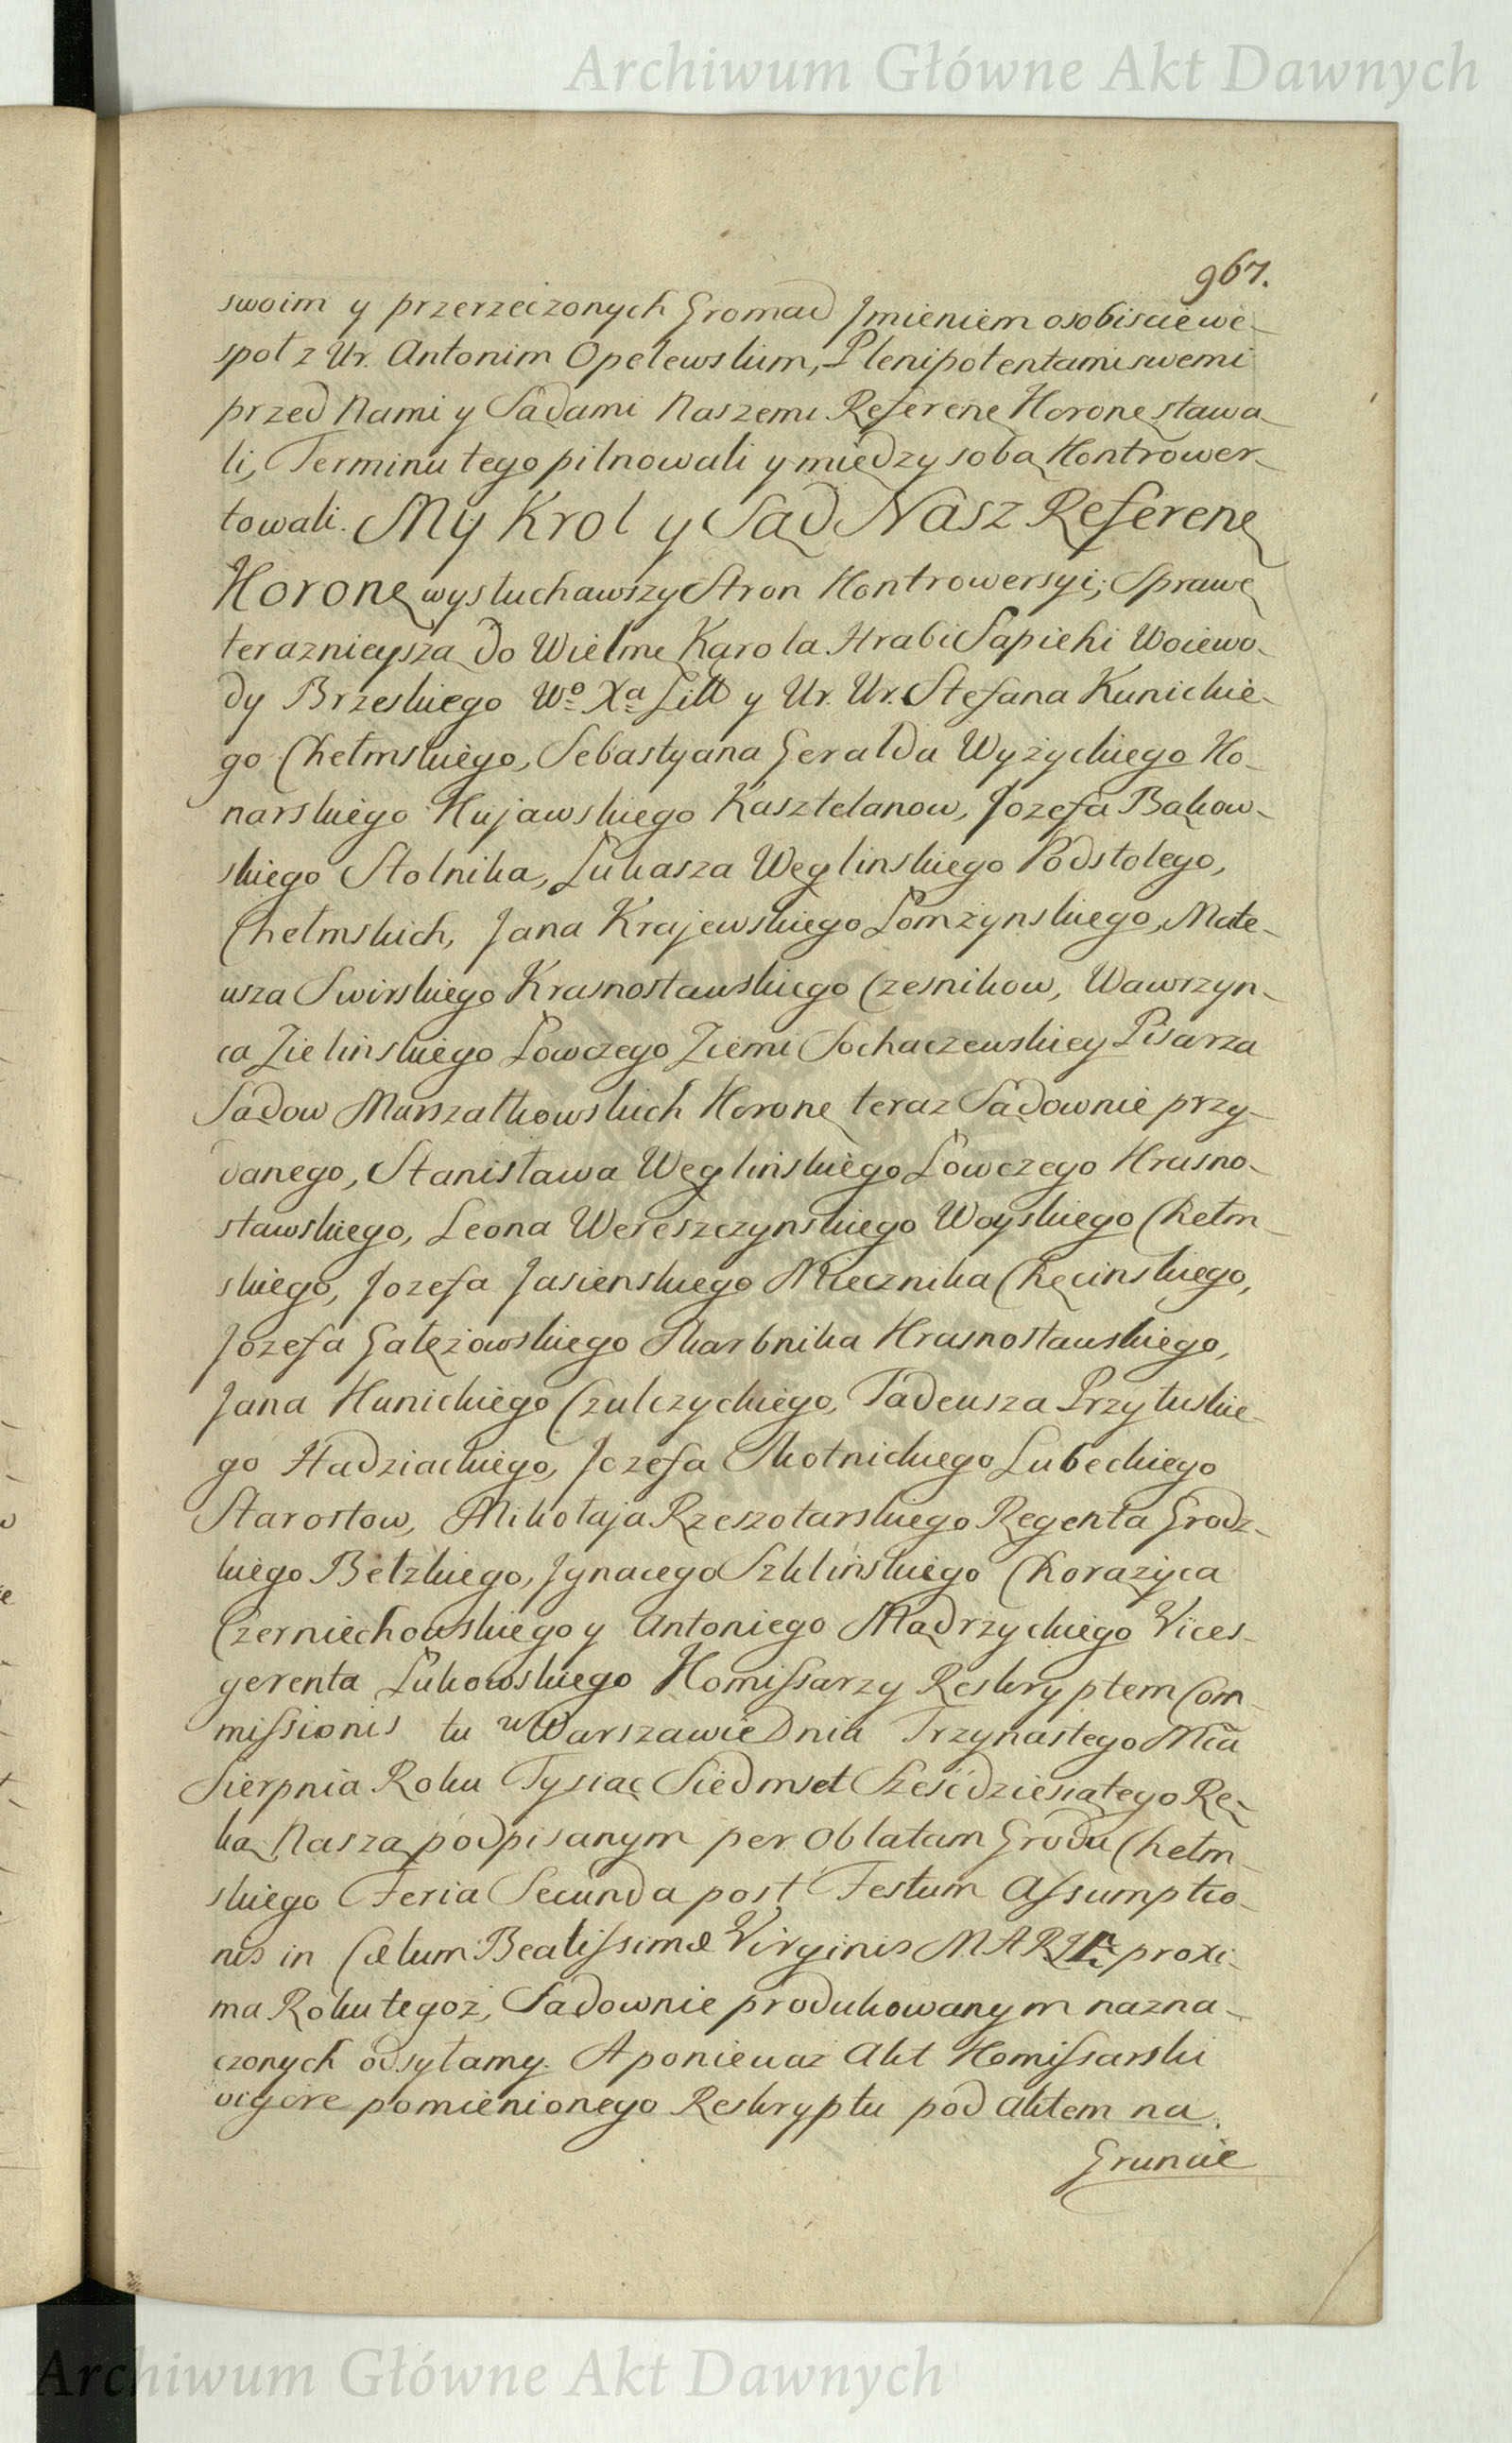 Archiwum Główne Akt Dawnych
967.
swoim y przerzeczonych Gromad Jmieniem osobiscie we-
społ z Ur. Antonim Opelewskim, Plenipotentami swemi
przed Nami y Sądami Naszemi Referenę Koronę stawa-
li, Terminu tego pilnowali y między sobą Kontrower-
towali. My Krol y Sąd Nasz Referenę
Koronę wysłuchawszy Stron Kontrowersyi; Sprawę
teraznieyszą do Wielmę Karola Hrabi Sapiehi Woiewo-
dy Brzeskiego Wo Xa Litt y Ur. Ur. Stefana Kunickie-
go Chełmskiego, Sebastyana Geralda Wyżyckiego Ko-
narskiego Kujawskiego Kasztelanow, Jozefa Bąkow-
skiego Stolnika, Łukasza Węglinskiego Podstolego,
Chełmskich, Jana Krajewskiego Łomżynskiego, Mate-
usza Swirskiego Krasnostawskiego Czesnikow, Wawrzyn-
ca Zielińskiego Łowczego Ziemi Sochaczewskiey Pisarza
Sądow Marszałkowskich Koronę teraz Sądownie przy-
danego, Stanisława Węglińskiego Łowczego Krasno-
stawskiego, Leona Wereszczynskiego Woyskiego Chełm-
skiego, Jozefa Jasienskiego Miecznika Chęcinskiego,
Jozefa Gałęzowskiego Skarbnika Krasnostawskiego,
Jana Kunickiego Czulczyckiego, Tadeusza Przyłuskie-
go Hadziackiego, Jozefa Skotnickiego Lubeckiego
Starostow, Mikołaja Rzeszotarskiego Regenta Grodz-
kiego Bełzkiego, Jgnacego Szklińskiego Chorążyca
Czerniechowskiego y Antoniego Mądrzyckiego Vices-
gerenta Łukowskiego Komissarzy Reskryptem Com-
missionis tu w Warszawie Dnia Trzynastego Mca
Sierpnia Roku Tysiąc Siedmset Sześćdziesiątego Rę-
ką Naszą podpisanym per Oblatam Grodu Chełm-
skiego Feria Secunda post Festum Assumptio-
nis in Cælum Beatissimæ Virginis MARIÆ proxi-
ma Roku tegoż, Sądownie produkowanym nazna-
czonych odsyłamy. A ponieważ Akt Komissarski
vigore pomienionego Reskryptu pod Aktem na
Gruncie
Archiwum Główne Akt Dawnych